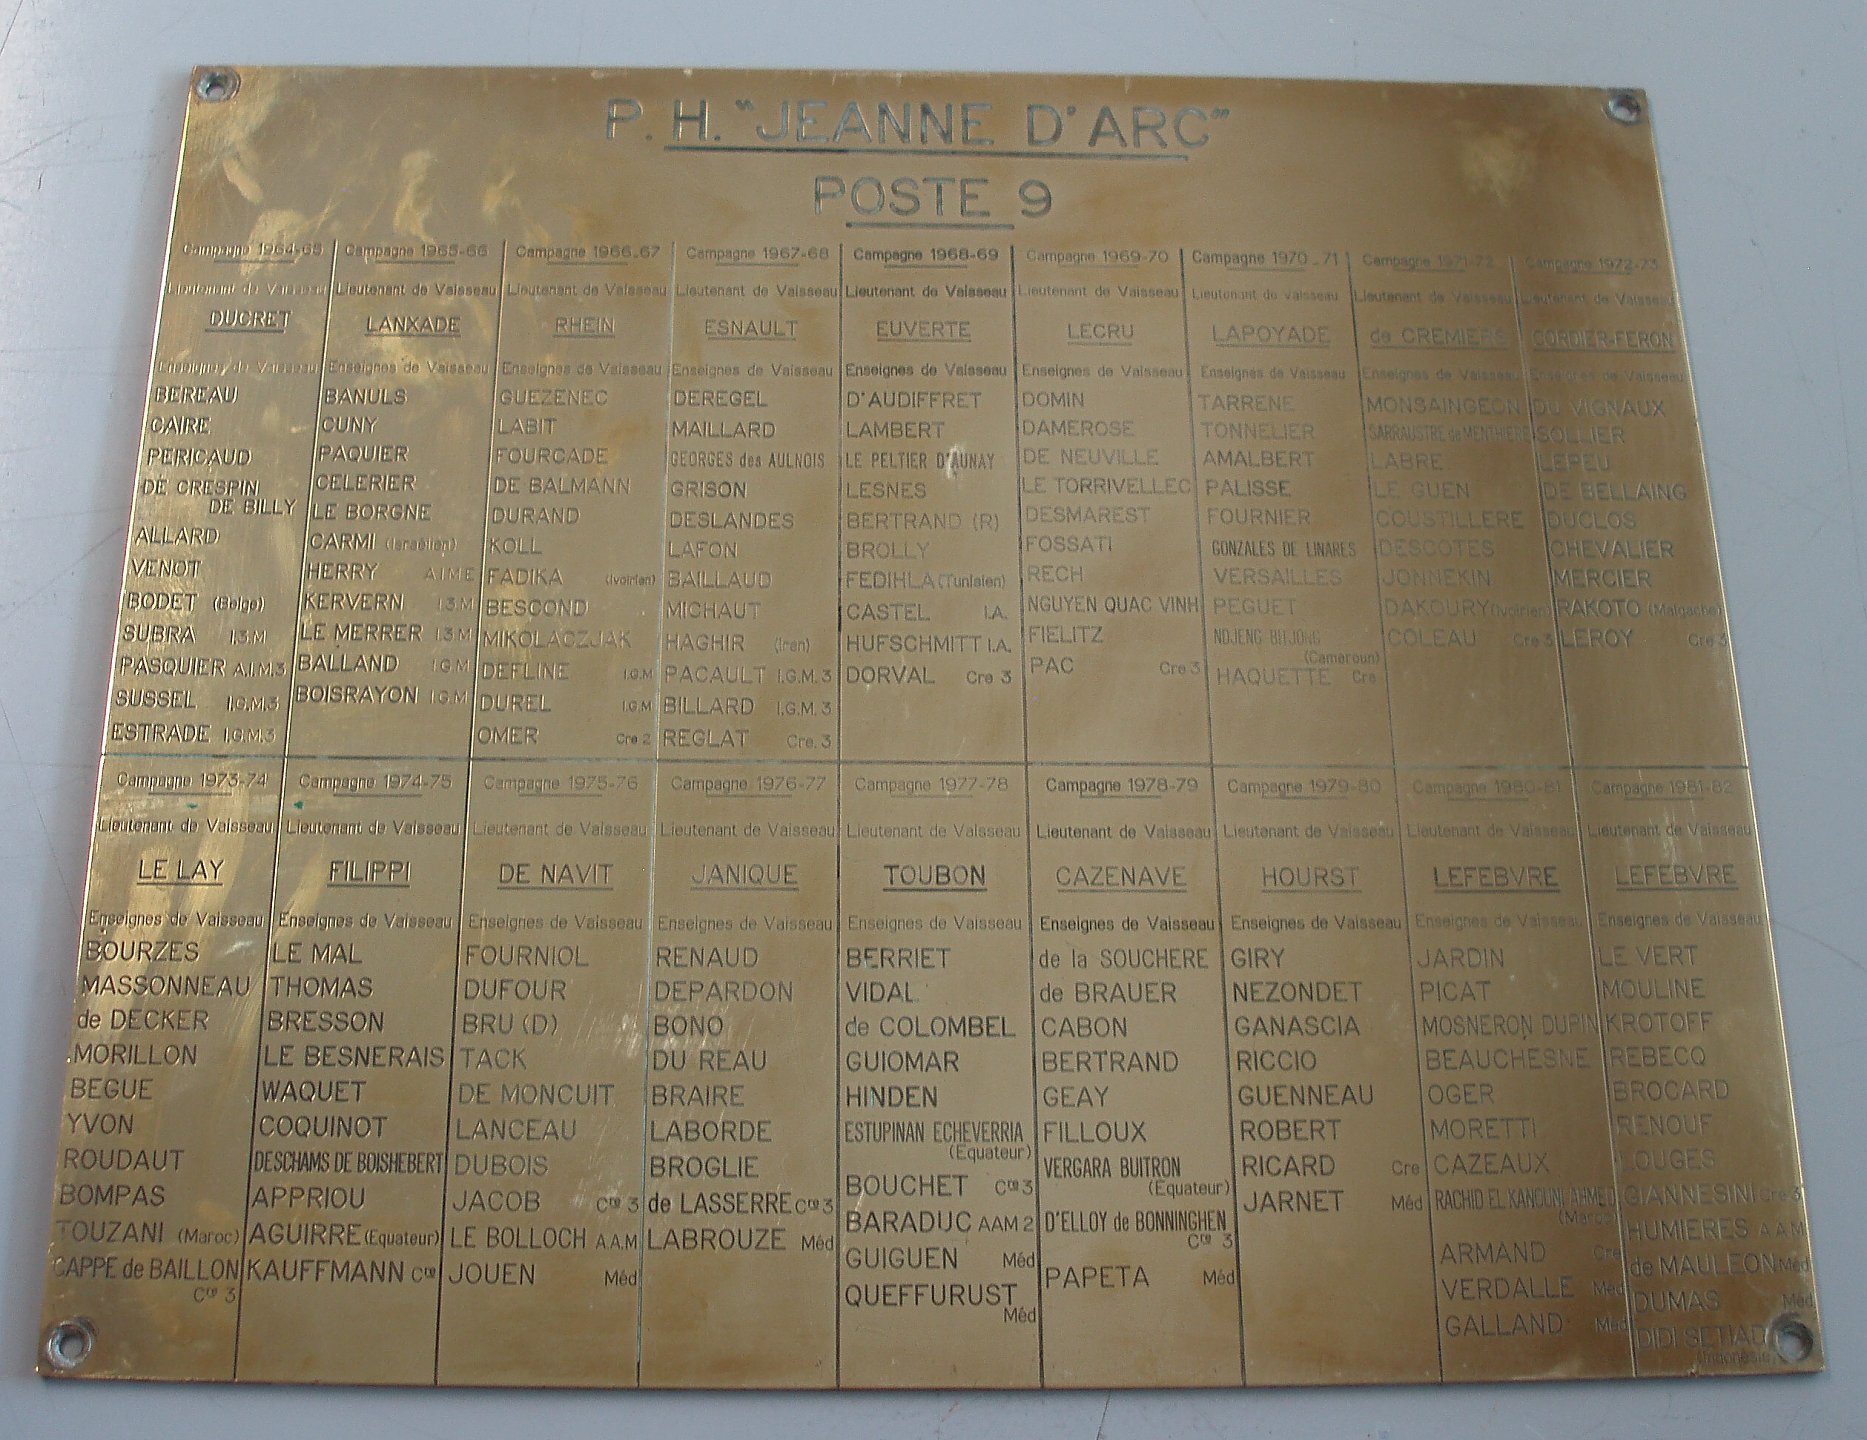 P.H. "JEANNE D'ARC"
POSTE 9
Campagne 1964-65
Lieutenant de Vaisseau
DUCRET
Enseignes de Vaisseau
BEREAU
CAIRE
PERICAUD
DE CRESPIN
DE BILLY
ALLARD
VENOT
BODET (Belge)
SUBRA I.3.M
PASQUIER A.I.M.3
SUSSEL I.G.M.3
ESTRADE I.G.M.3
Campagne 1965-66
Lieutenant de Vaisseau
LANXADE
Enseignes de Vaisseau
BANULS
CUNY
PAQUIER
CELERIER
LE BORGNE
CARMI (Israëlien)
HERRY A I M E
KERVERN I 3 M
LE MERRER I 3 M
BALLAND I G M
BOISRAYON I G M
Campagne 1966-67
Lieutenant de Vaisseau
RHEIN
Enseignes de Vaisseau
GUEZENEC
LABIT
FOURCADE
DE BALMANN
DURAND
KOLL
FADIKA (Ivoirien)
BESCOND
MIKOLACZJAK
DEFLINE I.G.M
DUREL I.G.M
OMER Cre 2
Campagne 1967-68
Lieutenant de Vaisseau
ESNAULT
Enseignes de Vaisseau
DEREGEL
MAILLARD
GEORGES des AULNOIS
GRISON
DESLANDES
LAFON
BAILLAUD
MICHAUT
HAGHIR (Iran)
PACAULT I.G.M. 3
BILLARD I.G.M. 3
REGLAT Cre. 3
Campagne 1968-69
Lieutenant de Vaisseau
EUVERTE
Enseignes de Vaisseau
D'AUDIFFRET
LAMBERT
LE PELTIER D'AUNAY
LESNES
BERTRAND (R)
BROLLY
FEDIHLA (Tunisien)
CASTEL I.A.
HUFSCHMITT I.A.
DORVAL Cre 3
Campagne 1969-70
Lieutenant de Vaisseau
LECRU
Enseignes de Vaisseau
DOMIN
DAMEROSE
DE NEUVILLE
LE TORRIVELLEC
DESMAREST
FOSSATI
RECH
NGUYEN QUAC VINH
FIELITZ
PAC Cre 3
Campagne 1970-71
Lieutenant de Vaisseau
LAPOYADE
Enseignes de Vaisseau
TARRENE
TONNELIER
AMALBERT
PALISSE
FOURNIER
GONZALES DE LINARES
VERSAILLES
PEGUET
NDJENG
(Cameroun)
HAQUETTE Cre
Campagne 1971-72
Lieutenant de Vaisseau
de CREMIERS
Enseignes de Vaisseau
MONSAINGEON
SARRAUSTRE de MENTHIERE
LABRE
LE GUEN
COUSTILLERE
DESCOTES
JONNEKIN
DAKOURY (Ivoirien)
COLEAU Cre 3
Campagne 1972-73
Lieutenant de Vaisseau
CORDIER-FERON
Enseignes de Vaisseau
DU VIGNAUX
SOLLIER
LEPEU
DE BELLAING
DUCLOS
CHEVALIER
MERCIER
RAKOTO (Malgache)
LEROY Cre 3
Campagne 1973-74
Lieutenant de Vaisseau
LE LAY
Enseignes de Vaisseau
BOURZES
MASSONNEAU
de DECKER
MORILLON
BEGUE
YVON
ROUDAUT
BOMPAS
TOUZANI (Maroc)
CAPPE de BAILLON
Cre 3
Campagne 1974-75
Lieutenant de Vaisseau
FILIPPI
Enseignes de Vaisseau
LE MAL
THOMAS
BRESSON
LE BESNERAIS
WAQUET
COQUINOT
DESCHAMS DE BOISHEBERT
APPRIOU
AGUIRRE (Equateur)
KAUFFMANN Cre
Campagne 1975-76
Lieutenant de Vaisseau
DE NAVIT
Enseignes de Vaisseau
FOURNIOL
DUFOUR
BRU (D)
TACK
DE MONCUIT
LANCEAU
DUBOIS
JACOB Cre 3
LE BOLLOCH A.A.M
JOUEN Méd
Campagne 1976-77
Lieutenant de Vaisseau
JANIQUE
Enseignes de Vaisseau
RENAUD
DEPARDON
BONO
DU REAU
BRAIRE
LABORDE
BROGLIE
de LASSERRE Cre 3
LABROUZE Méd
Campagne 1977-78
Lieutenant de Vaisseau
TOUBON
Enseignes de Vaisseau
BERRIET
VIDAL
de COLOMBEL
GUIOMAR
HINDEN
ESTUPINAN ECHEVERRIA
(Equateur)
BOUCHET Cre 3
BARADUC AAM 2
GUIGUEN Méd
QUEFFURUST
Méd
Campagne 1978-79
Lieutenant de Vaisseau
CAZENAVE
Enseignes de Vaisseau
de la SOUCHERE
de BRAUER
CABON
BERTRAND
GEAY
FILLOUX
VERGARA BUITRON
(Equateur)
D'ELLOY de BONNINGHEN
Cre 3
PAPETA Méd
Campagne 1979-80
Lieutenant de Vaisseau
HOURST
Enseignes de Vaisseau
GIRY
NEZONDET
GANASCIA
RICCIO
GUENNEAU
ROBERT
RICARD Cre
JARNET Méd
Campagne 1980-81
Lieutenant de Vaisseau
LEFEBVRE
Enseignes de Vaisseau
JARDIN
PICAT
MOSNERON DUPIN
BEAUCHESNE
OGER
MORETTI
CAZEAUX
RACHID EL KANOUNI AHMED
(Maroc)
ARMAND Cre
VERDALLE Méd
GALLAND Méd
Campagne 1981-82
Lieutenant de Vaisseau
LEFEBVRE
Enseignes de Vaisseau
LE VERT
MOULINE
KROTOFF
REBECQ
BROCARD
RENOUF
LOUGES
GIANNESINI Cre 3
HUMIERES A A M
de MAULEON Méd
DUMAS Méd
DIDI SETIADI
(Indonésie)